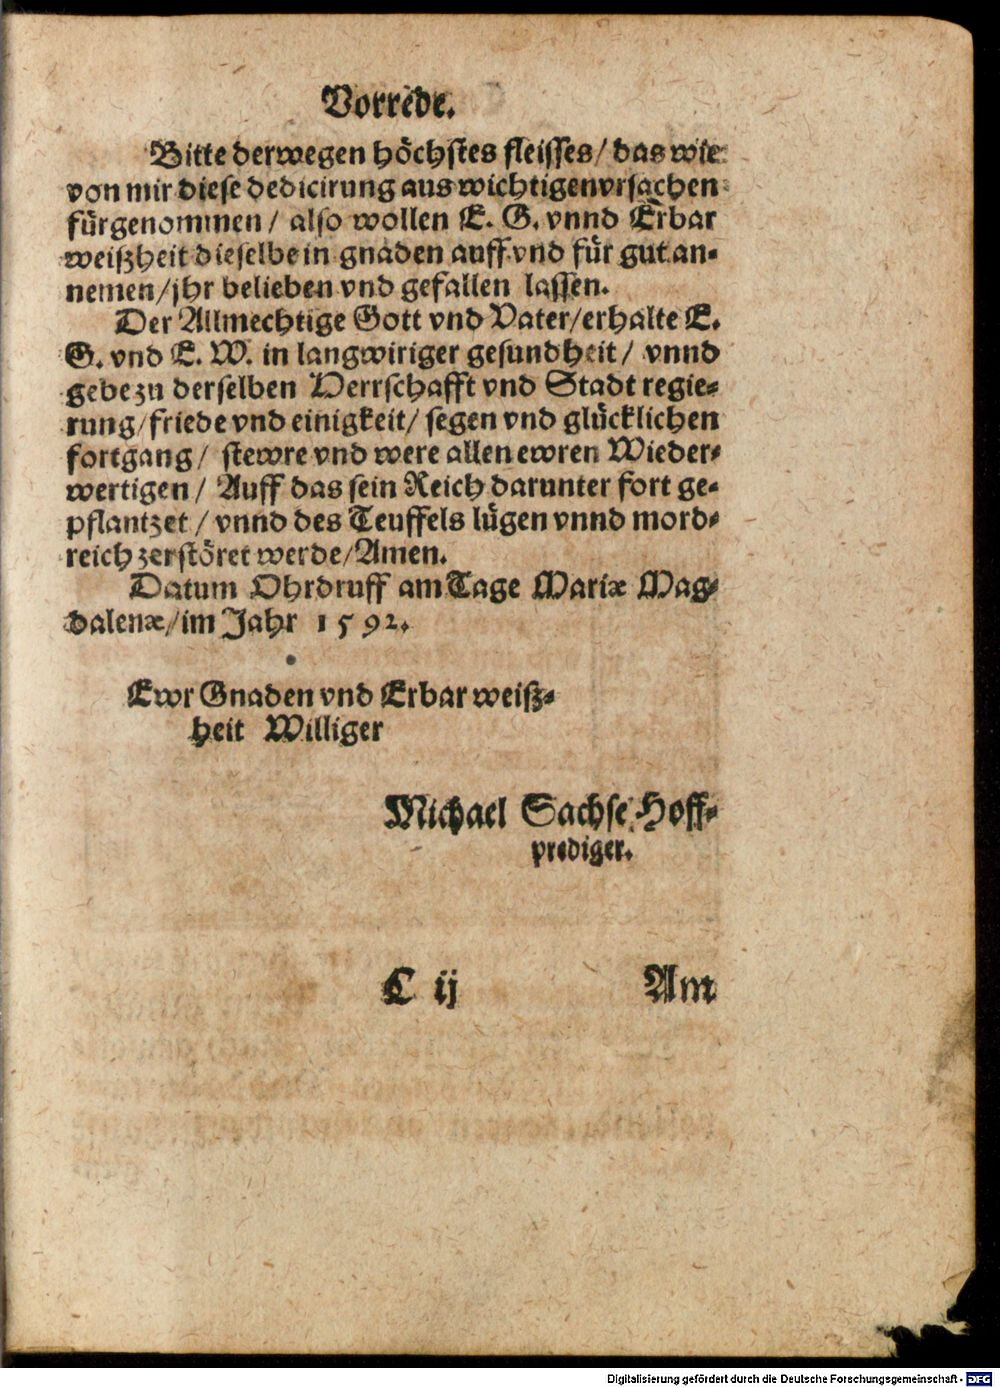 Vorrede.
Bitte derwegen höchstes fleisses / das wie
von mir diese dedicirung aus wichtigen vrsachen
fürgenommen / also wollen E. G. vnnd Erbar
weißheit dieselbe in gnaden auff vnd für gut an-
nemen / jhr belieben vnd gefallen lassen.
Der Allmechtige Gott vnd Vater / erhalte E.
G. vnd E. W. in langwiriger gesundheit / vnnd
gebe zu derselben Herrschafft vnd Stadt regie-
rung / friede vnd einigkeit / segen vnd glücklichen
fortgang / stewre vnd were allen ewren Wieder-
wertigen / Auff das sein Reich darunter fort ge-
pflantzet / vnnd des Teuffels lügen vnnd mord-
reich zerstöret werde / Amen.
Datum Ohrdruff am Tage Mariæ Mag-
dalenæ / im Jahr 1592.
Ewr Gnaden vnd Erbar weiß-
heit Williger
Michael Sachse Hoff-
prediger.
C ij Am
Digitalisierung gefördert durch die Deutsche Forschungsgemeinschaft - DFG